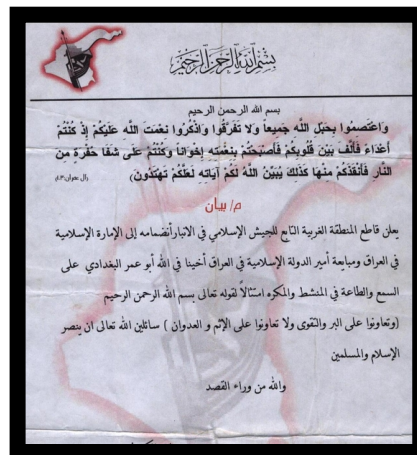 بسم الله الرحمن الرحيم
بسم الله الرحمن الرحيم
وَاعْتَصِمُوا بِحَبْلِ اللَّهِ جَمِيعاً وَلا تَفَرَّقُوا وَاذْكُرُوا نِعْمَتَ اللَّهِ عَلَيْكُمْ إِذْ كُنْتُمْ
أَعْدَاءً فَأَلَّفَ بَيْنَ قُلُوبِكُمْ فَأَصْبَحْتُمْ بِنِعْمَتِهِ إِخْوَاناً وَكُنْتُمْ عَلَى شَفَا حُفْرَةٍ مِنَ
النَّارِ فَأَنْقَذَكُمْ مِنْهَا كَذَلِكَ يُبَيِّنُ اللَّهُ لَكُمْ آيَاتِهِ لَعَلَّكُمْ تَهْتَدُونَ)
م/ بيان
يعلن قاطع المنطقة الغربية التابع للجيش الإسلامي في الانبار أنضمامه إلى الإمارة الإسلامية
في العراق ومبايعة أمير الدولة الإسلامية في العراق أخينا في الله أبو عمر البغدادي على
السمع والطاعة في المنشط والمكره امتثالاً لقوله تعالى بسم الله الرحمن الرحيم
(وتعاونوا على البر والتقوى ولا تعاونوا على الإثم و العدوان ) سائلين الله تعالى ان ينصر
الإسلام والمسلمين
والله من وراء القصد